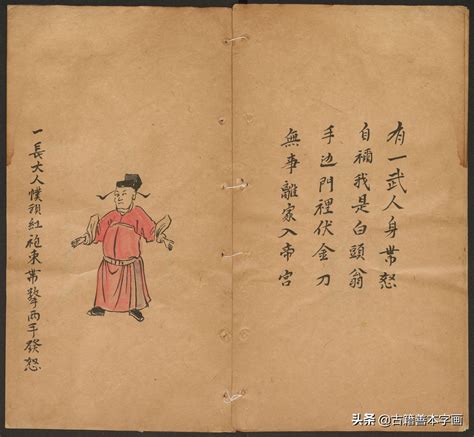 有一武人身帶怒
自稱我是白頭翁
手边門裡伏金刀
無事離家入帝宫
一長大人幞頭紅袍束帶擎两手發怒
头条 @古籍善本字画